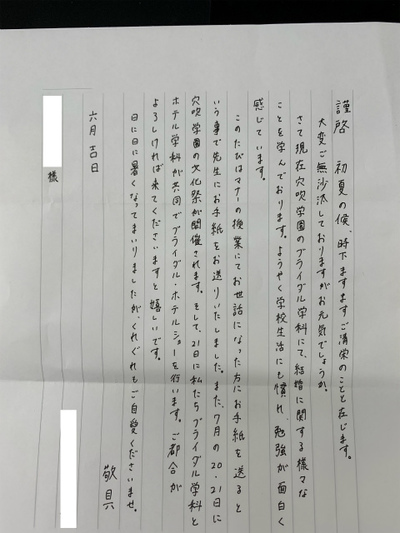 謹啓　初夏の候、時下ますますご清栄のことと存じます。
大変ご無沙汰しておりますがお元気でしょうか。
さて現在穴吹学園のブライダル学科にて、結婚に関する様々な
ことを学んでおります。ようやく学校生活にも慣れ、勉強が面白く
感じています。
このたびはマナーの授業にてお世話になった方にお手紙を送ると
いう事で先生にお手紙をお送りいたしました。また、7月の20・21日に
穴吹学園の文化祭が開催されます。そして、21日に私たちブライダル学科と
ホテル学科が共同でブライダル・ホテルショーを行います。ご都合が
よろしければ来てくださいますと嬉しいです。
日に日に暑くなってまいりましたが、くれぐれもご自愛くださいませ。
敬具
六月吉日
様